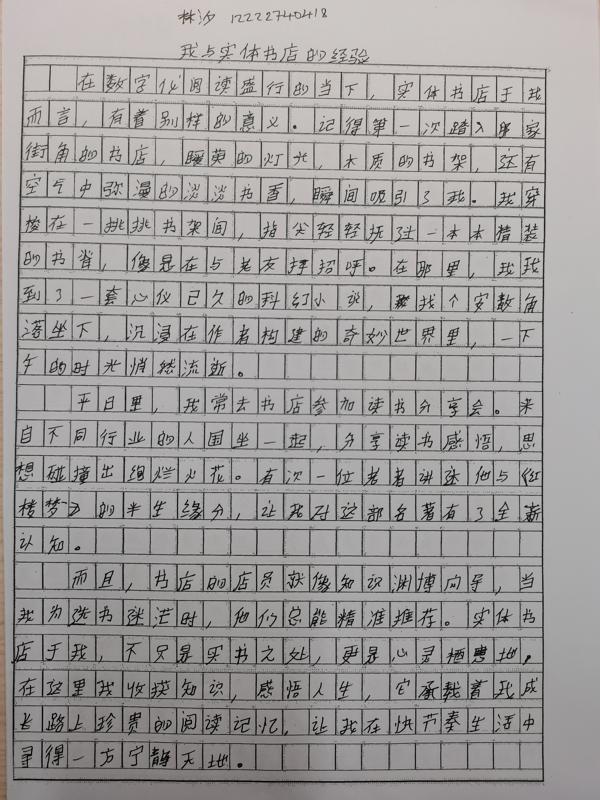 林汐 12222740418
我与实体书店的经验
在数字化阅读盛行的当下，实体书店于我
而言，有着别样的意义。记得第一次踏入那家
街角的书店，暖黄的灯光，木质的书架，还有
空气中弥漫的淡淡书香，瞬间吸引了我。我穿
梭在一排排书架间，指尖轻轻抚过一本本精装
的书脊，像是在与老友打招呼。在那里，我找
到了一套心仪已久的科幻小说，找个安静角
落坐下，沉浸在作者构建的奇妙世界里，一下
午的时光悄然流逝。
平日里，我常去书店参加读书分享会。来
自不同行业的人围坐一起，分享读书感悟，思
想碰撞出绚烂火花。有次一位老者讲述他与红
楼梦的半生缘分，让我对这部名著有了全新
认知。
而且，书店的店员就像知识渊博向导，当
我为选书迷茫时，他们总能精准推荐。实体书
店于我，不只是卖书之处，更是心灵栖息地。
在这里我收获知识，感悟人生，它承载着我成
长路上珍贵的阅读记忆，让我在快节奏生活中
寻得一方宁静天地。